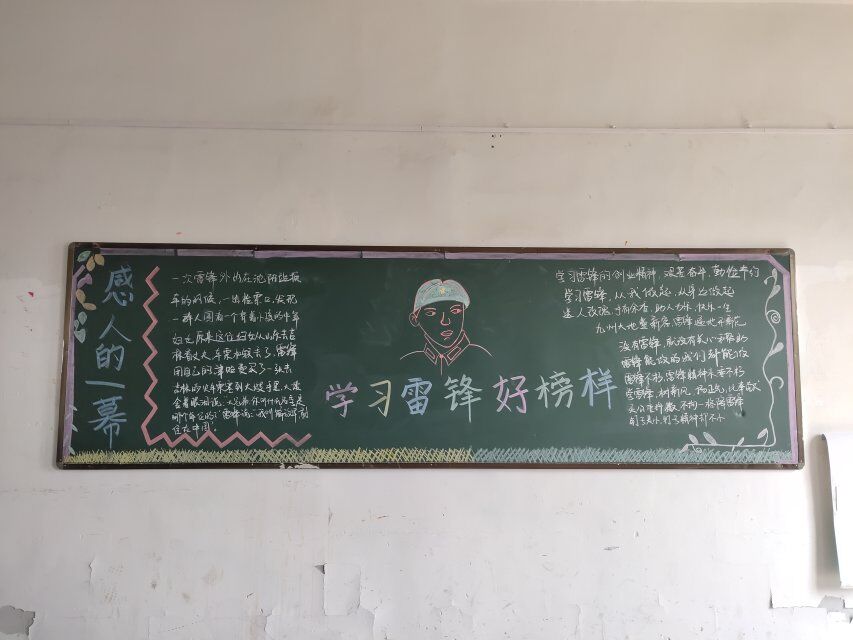 感人的一幕
一次雷锋外出在沈阳站换
车的时候，一出检票口，发现
一群人围着一个背着小孩的中年
妇女，原来这位妇女从山东去吉
林看丈夫，车票和钱丢了，雷锋
用自己的津贴费买了一张去
吉林的火车票塞到大嫂手里，大嫂
含着眼泪说："大兄弟，你叫什么名字是
哪个单位的？"雷锋说："我叫解放军，就
住在中国"。
学习雷锋好榜样
学习雷锋的创业精神，艰苦奋斗，勤俭奉行
学习雷锋，从我做起，从身边做起
送人玫瑰，手有余香，助人为乐，快乐一生
九州大地气象新，雷锋遍地开新花
没有雷锋，就没有热心帮助
雷锋能做的我们都能做
雷锋不朽，雷锋精神永垂不朽
学雷锋，树新风
不拘一格学雷锋
钉子虽小，钉子精神却不小